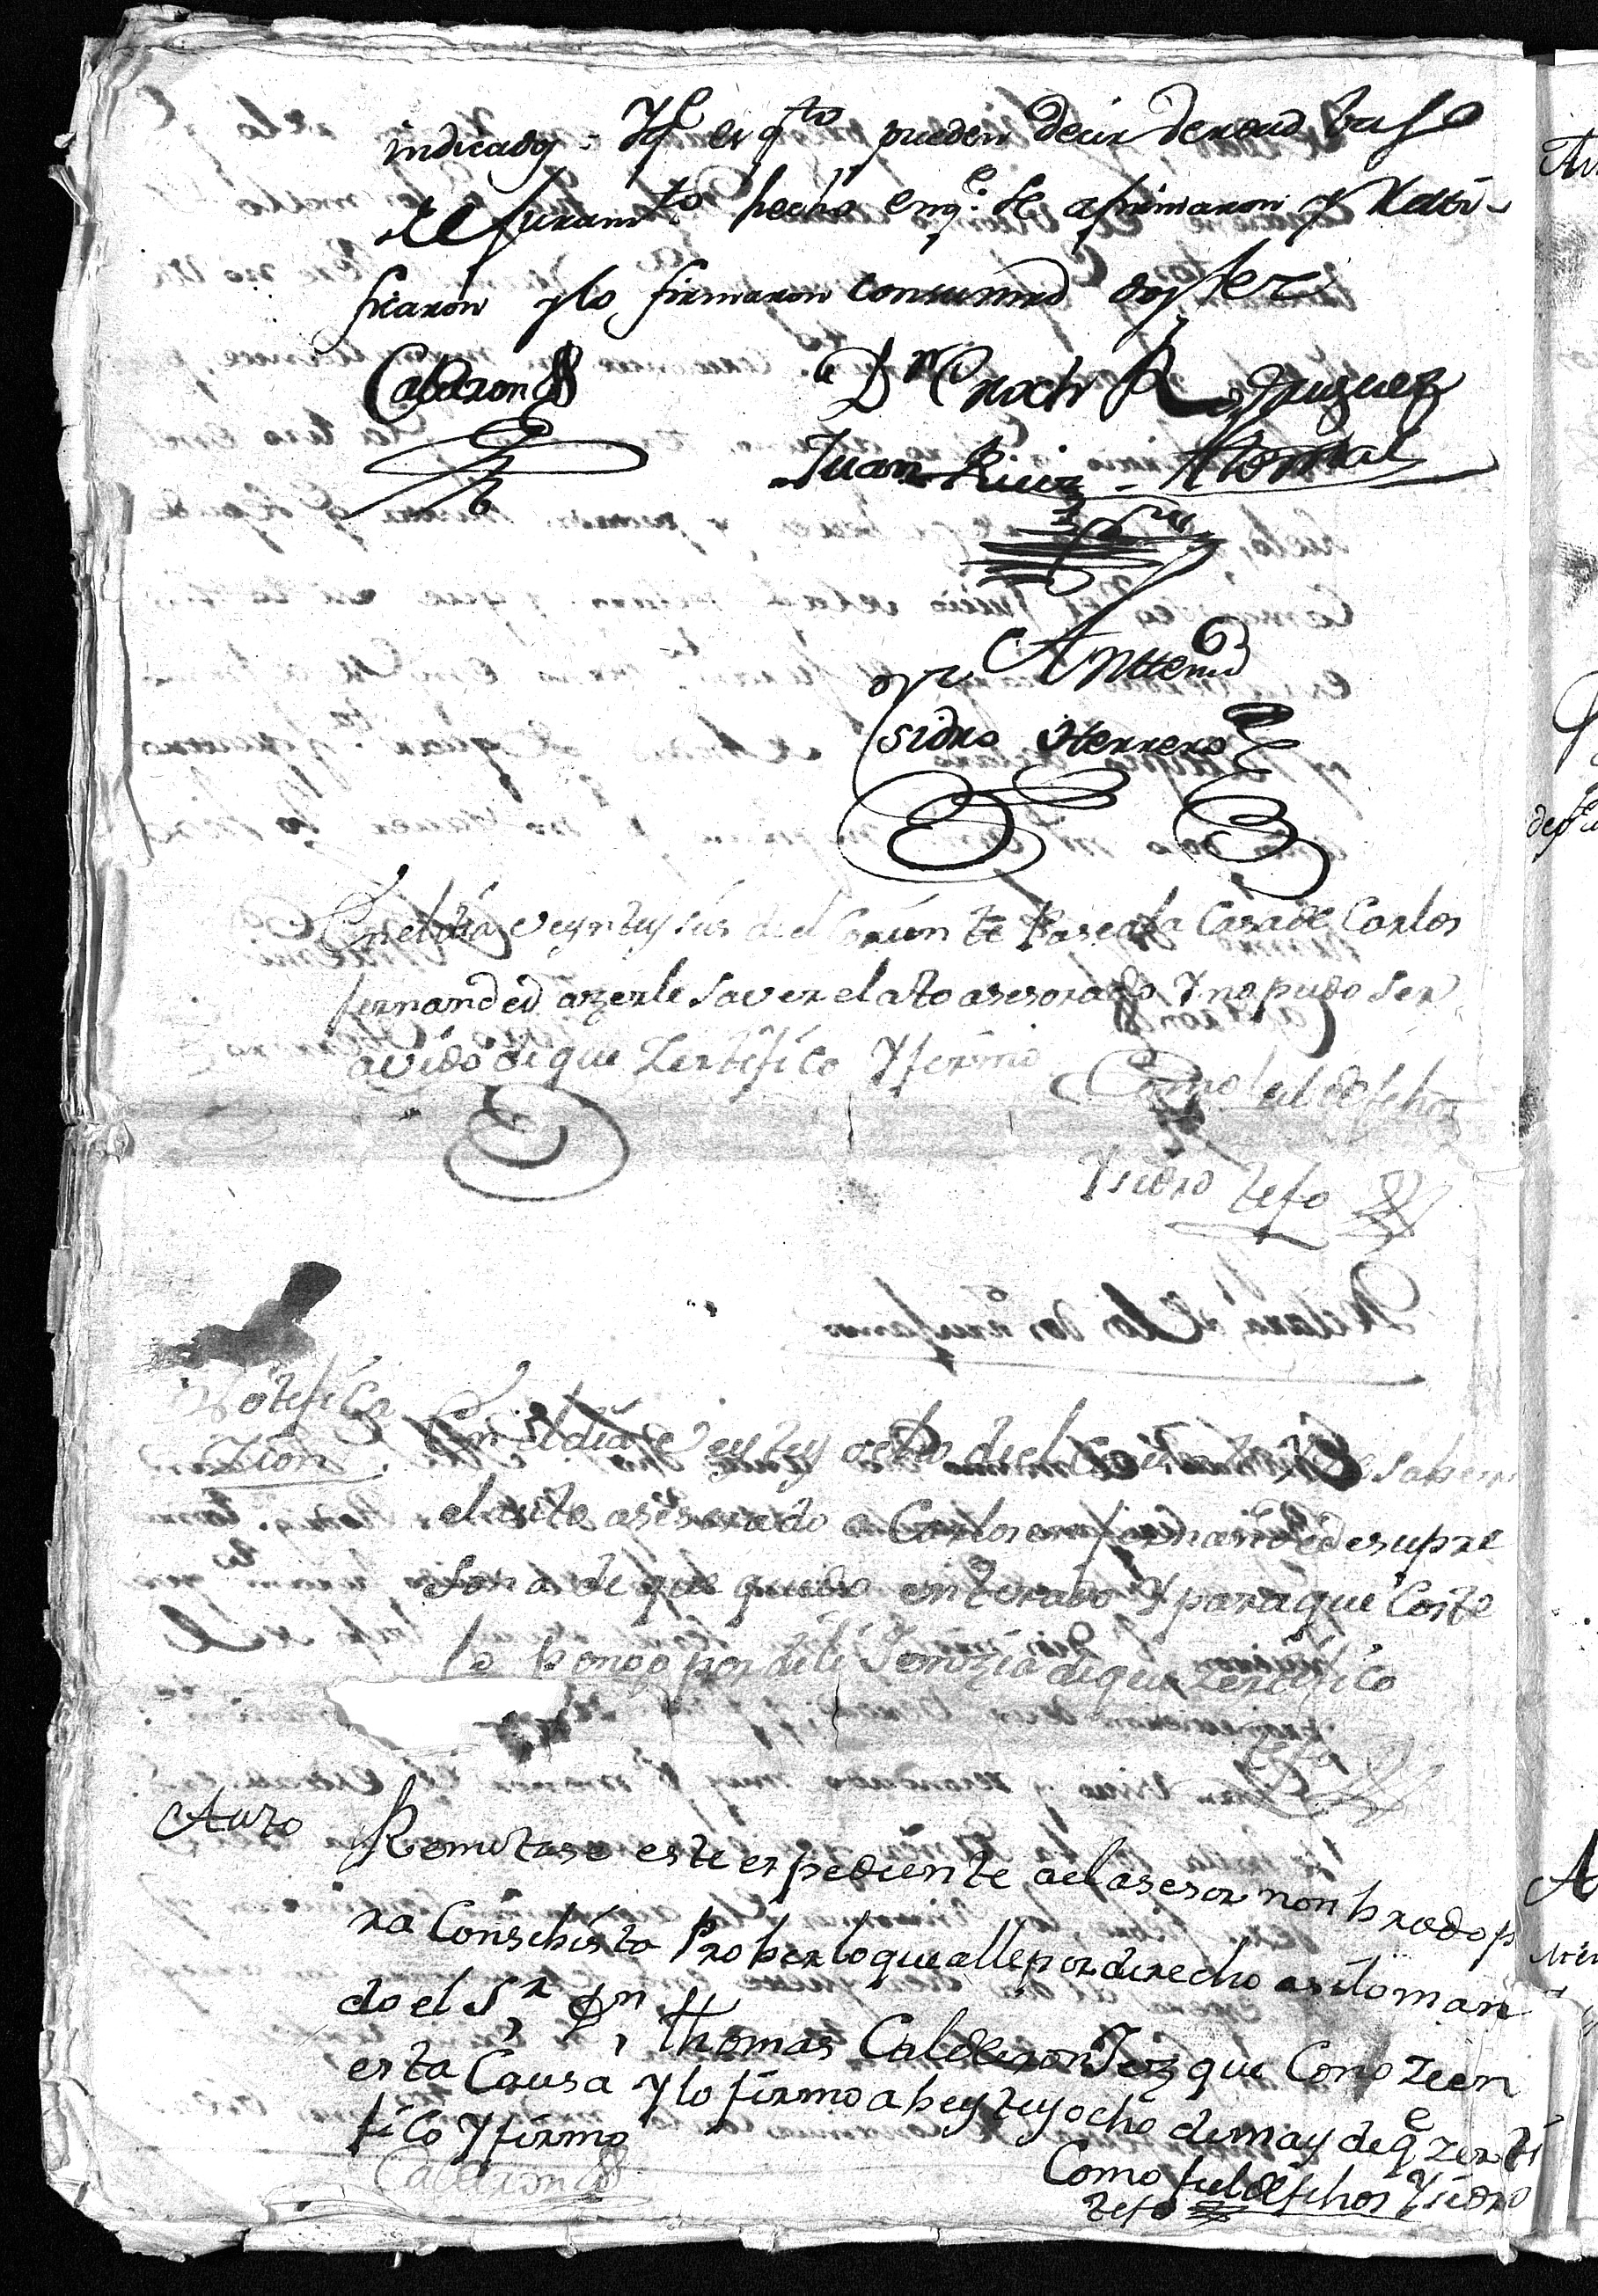 indicado = Y q.e es q.to pueden decir de verdad baxo
del Juram.to hecho en q.e se afirmaron y Ratti-
ficaron y lo firmaron con su mrd doy fee
Calderon
Juan Ruiz
Antte mi
Isidro Herrero
En el dia veyntyseis del Coriente Pase a la Casa de Carlos
fernanded azerle saver el ato asesorado Y no pudo ser
avido di que Zertifico Y firmo
Como fiel de fechos
Ysidro Zefo
Notifica
Zion
En el dia veyntyocho del saber
el auto asesorado a Carlos fernanded en su pre
sona de que quedo enterado Y para que Coste
lo pongo por dili Jenzia di que Zertifico
Zefo
Auto
Remitase este espediente ael asesor nonbrado p
ra Con su bista Prober lo que alle por derecho asi lo man
do el S.r D.n Thomas Calderon Juez que Conoze en
esta Causa Y lo firmo a beyteyocho de may de q.e zerti
fico Y firmo
Calderon
Como fiel de fechos Ysidro
Zefo